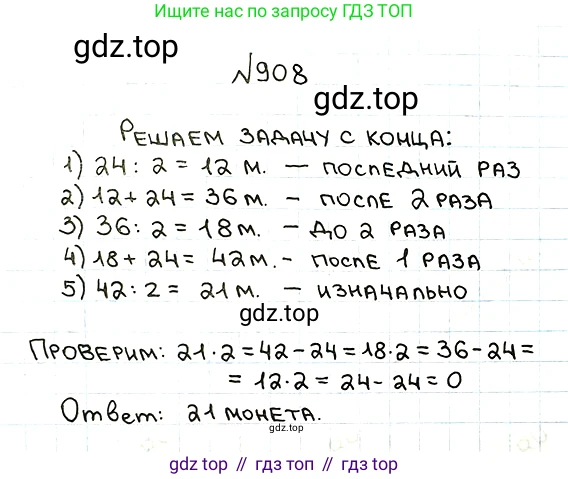 Ищите нас по запросу ГДЗ ТОП
gdz.top
№908
gdz.top
Решаем задачу с конца:
1) 24 : 2 = 12 м. – последний раз
2) 12 + 24 = 36 м. – после 2 раза
3) 36 : 2 = 18 м. – до 2 раза
4) 18 + 24 = 42 м. – после 1 раза
5) 42 : 2 = 21 м. – изначально
gdz.top
Проверим: 21 · 2 = 42 – 24 = 18 · 2 = 36 – 24 =
= 12 · 2 = 24 – 24 = 0
Ответ: 21 монета.
gdz.top
gdz top // гдз топ // гдз.топ